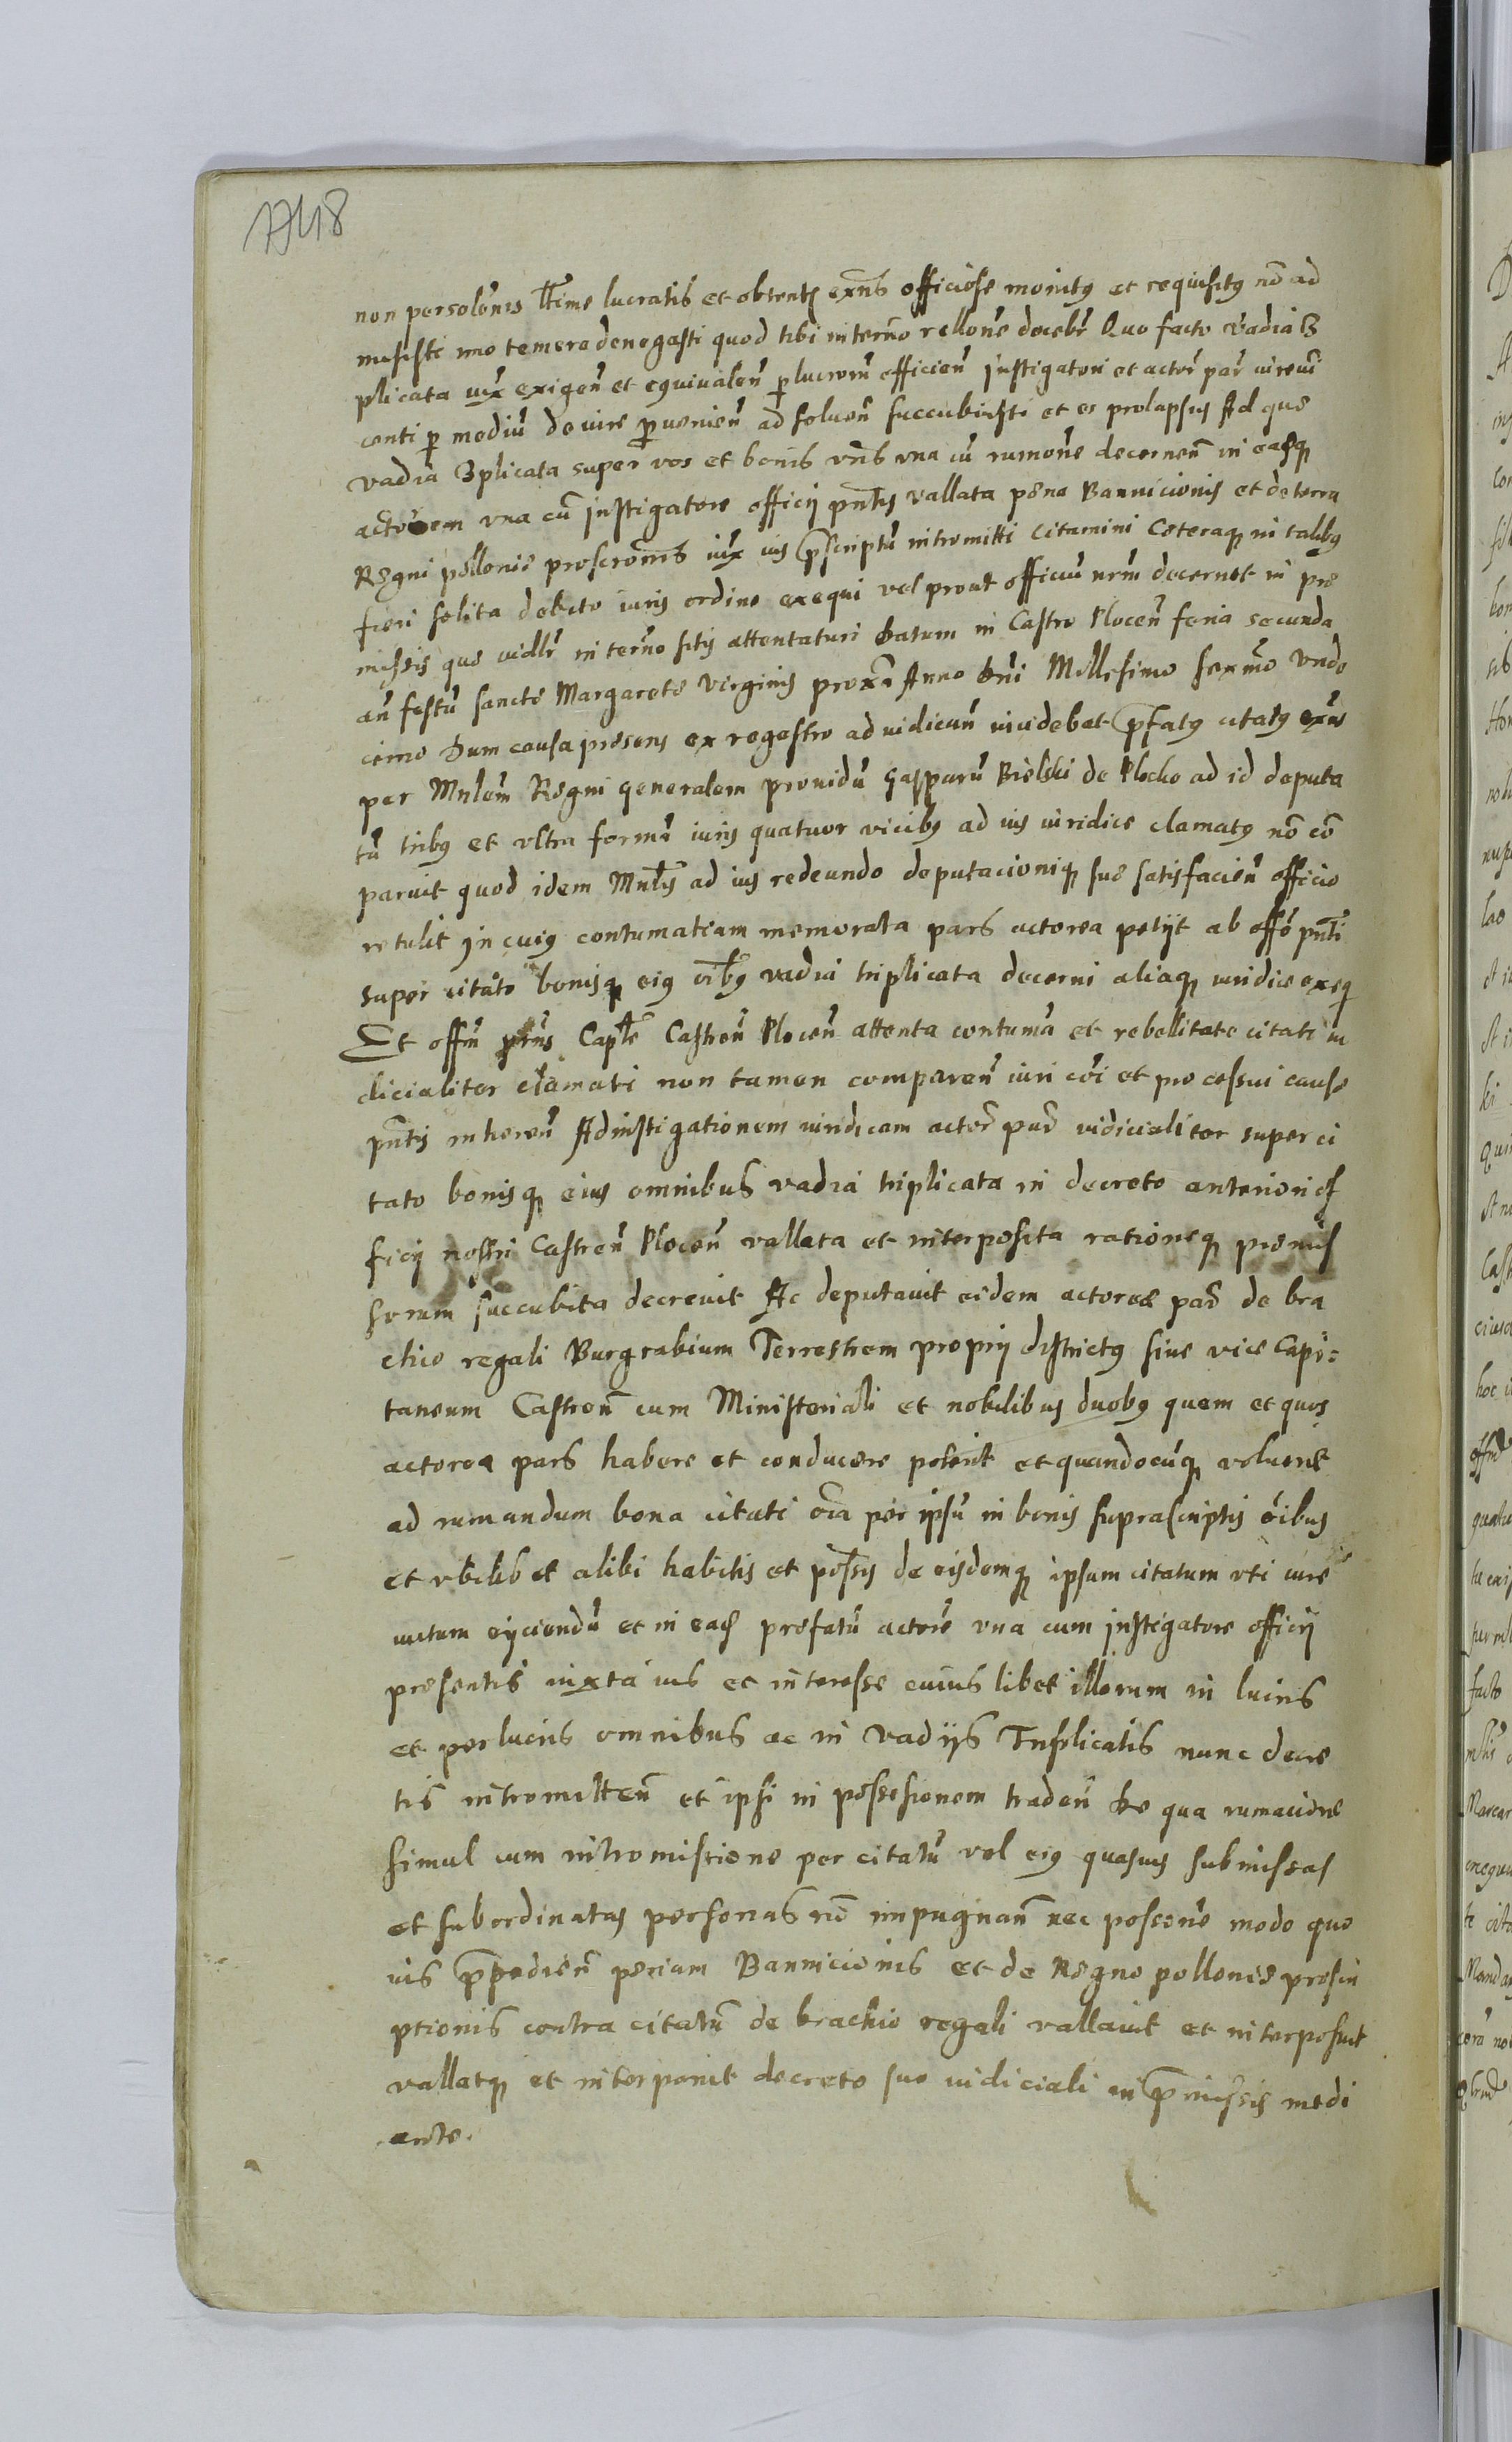 1748
non persolõnis lt̃ime lucratis et obtentɇ exñs officiose monitꝰ et requisitꝰ nõ ad
misisti imo temere denegasti quod tibi in termo rellone docebr̃ Quo facto vadia 3
plicata iux̃ exigeñ et equivaleñ ꝑ lucrorũ efficieñ Instigatori et actor̃ par̃ iurevi
centi ꝑ mediũ de iure ꝑvenieñ ad solueñ succubuisti et es prolapsus Ad que
vadia 3plicata super vos et bonis vr̃is vna cũ rumone decerneñ in easqꝫ
actorem vna cũ instigatore officij pñtis vallata pena Bannicionis et de terra
Regni pollonie proscronis iux̃ ius p̃scriptũ intromitti Citamini Ceteraqꝫ in talibꝰ
fieri solita debito iuris ordine exequi vel prout officiũ nr̃m decernet in pre
missis que vidbr̃ in termo sitis attentaturi Datum in Castro Ploceñ feria secunda
añ festũ sancte Margarete virginis proxã Anno Dñi Millesimo sexmo Vnde
cimo Dum causa presens ex regestro ad iudicañ incidebat p̃fatꝰ citatꝰ exñs
per Mnlem̃ Regni generalem providũ Gasparũ Bielski de Plocko ad id deputa
tũ tribꝰ et vltra formã iuris quatuor vicibꝰ ad ius iuridice clamatꝰ nõ cõ
paruit quod idem Mnlis̃ ad ius redeundo deputacioniqꝫ sue satisfacieñ officio
retulit In cuiꝰ contumatiam memorata pars actorea petijt ab offõ pñti
super citato bonisqꝫ eiꝰ oĩbꝰ vadia triplicata decerni aliaqꝫ iuridice exeq̃
Et offm̃ pñs Caplẽ Castreñ Ploceñ attenta contumã et rebellitate citati iu
dicialiter clamati non tamen compareñ iuri cõi et processui cause
pñtis inhereñ Ad instigationem iuridicam actor̃ par̃ iudicialiter super ci
tato bonisqꝫ eius omnibus vadia triplicata in decreto anteriori of
ficij nostri Castreñ Ploceñ vallata et interposita rationeqꝫ premis
sorum succubita decrevit Ac deputavit eidem actoreæ par̃ de bra
chio regali Burgrabium Terrestrem proprij districtꝰ sive vice Capi=
taneum Castreñ cum Ministeriali et nobilibus duobꝰ quem et quos
actorea pars habere et conducere poterit et quandocũqꝫ voluerit
ad rumandum bona citati oĩa per ipsũ in bonis suprascriptis oĩbus
et vbilibet alibi habitis et possis de eisdemqꝫ ipsum citatum vti iure
victum eijciendũ et in eas prefatũ actorẽ vna cum instigatore officij
presentis iuxta ius et interesse cuiuslibet illorum in lucris
et perlucris omnibus ac in vadijs Triplicatis nunc decre
tis intromitteñ et ipsi in possesionem tradeñ De qua rumacione
simul cum intromissione per citatũ vel eiꝰ quasvis submissas
et subordinatas personas nõ impugnañ nec possone modo quo
vis p̃pedieñ penam Bannicionis et de Regno pollonie proscri
ptionis contra citatũ de brachio regali vallavit et interposuit
vallatqꝫ et interponit decreto suo iudiciali in p̃missis medi
ante.